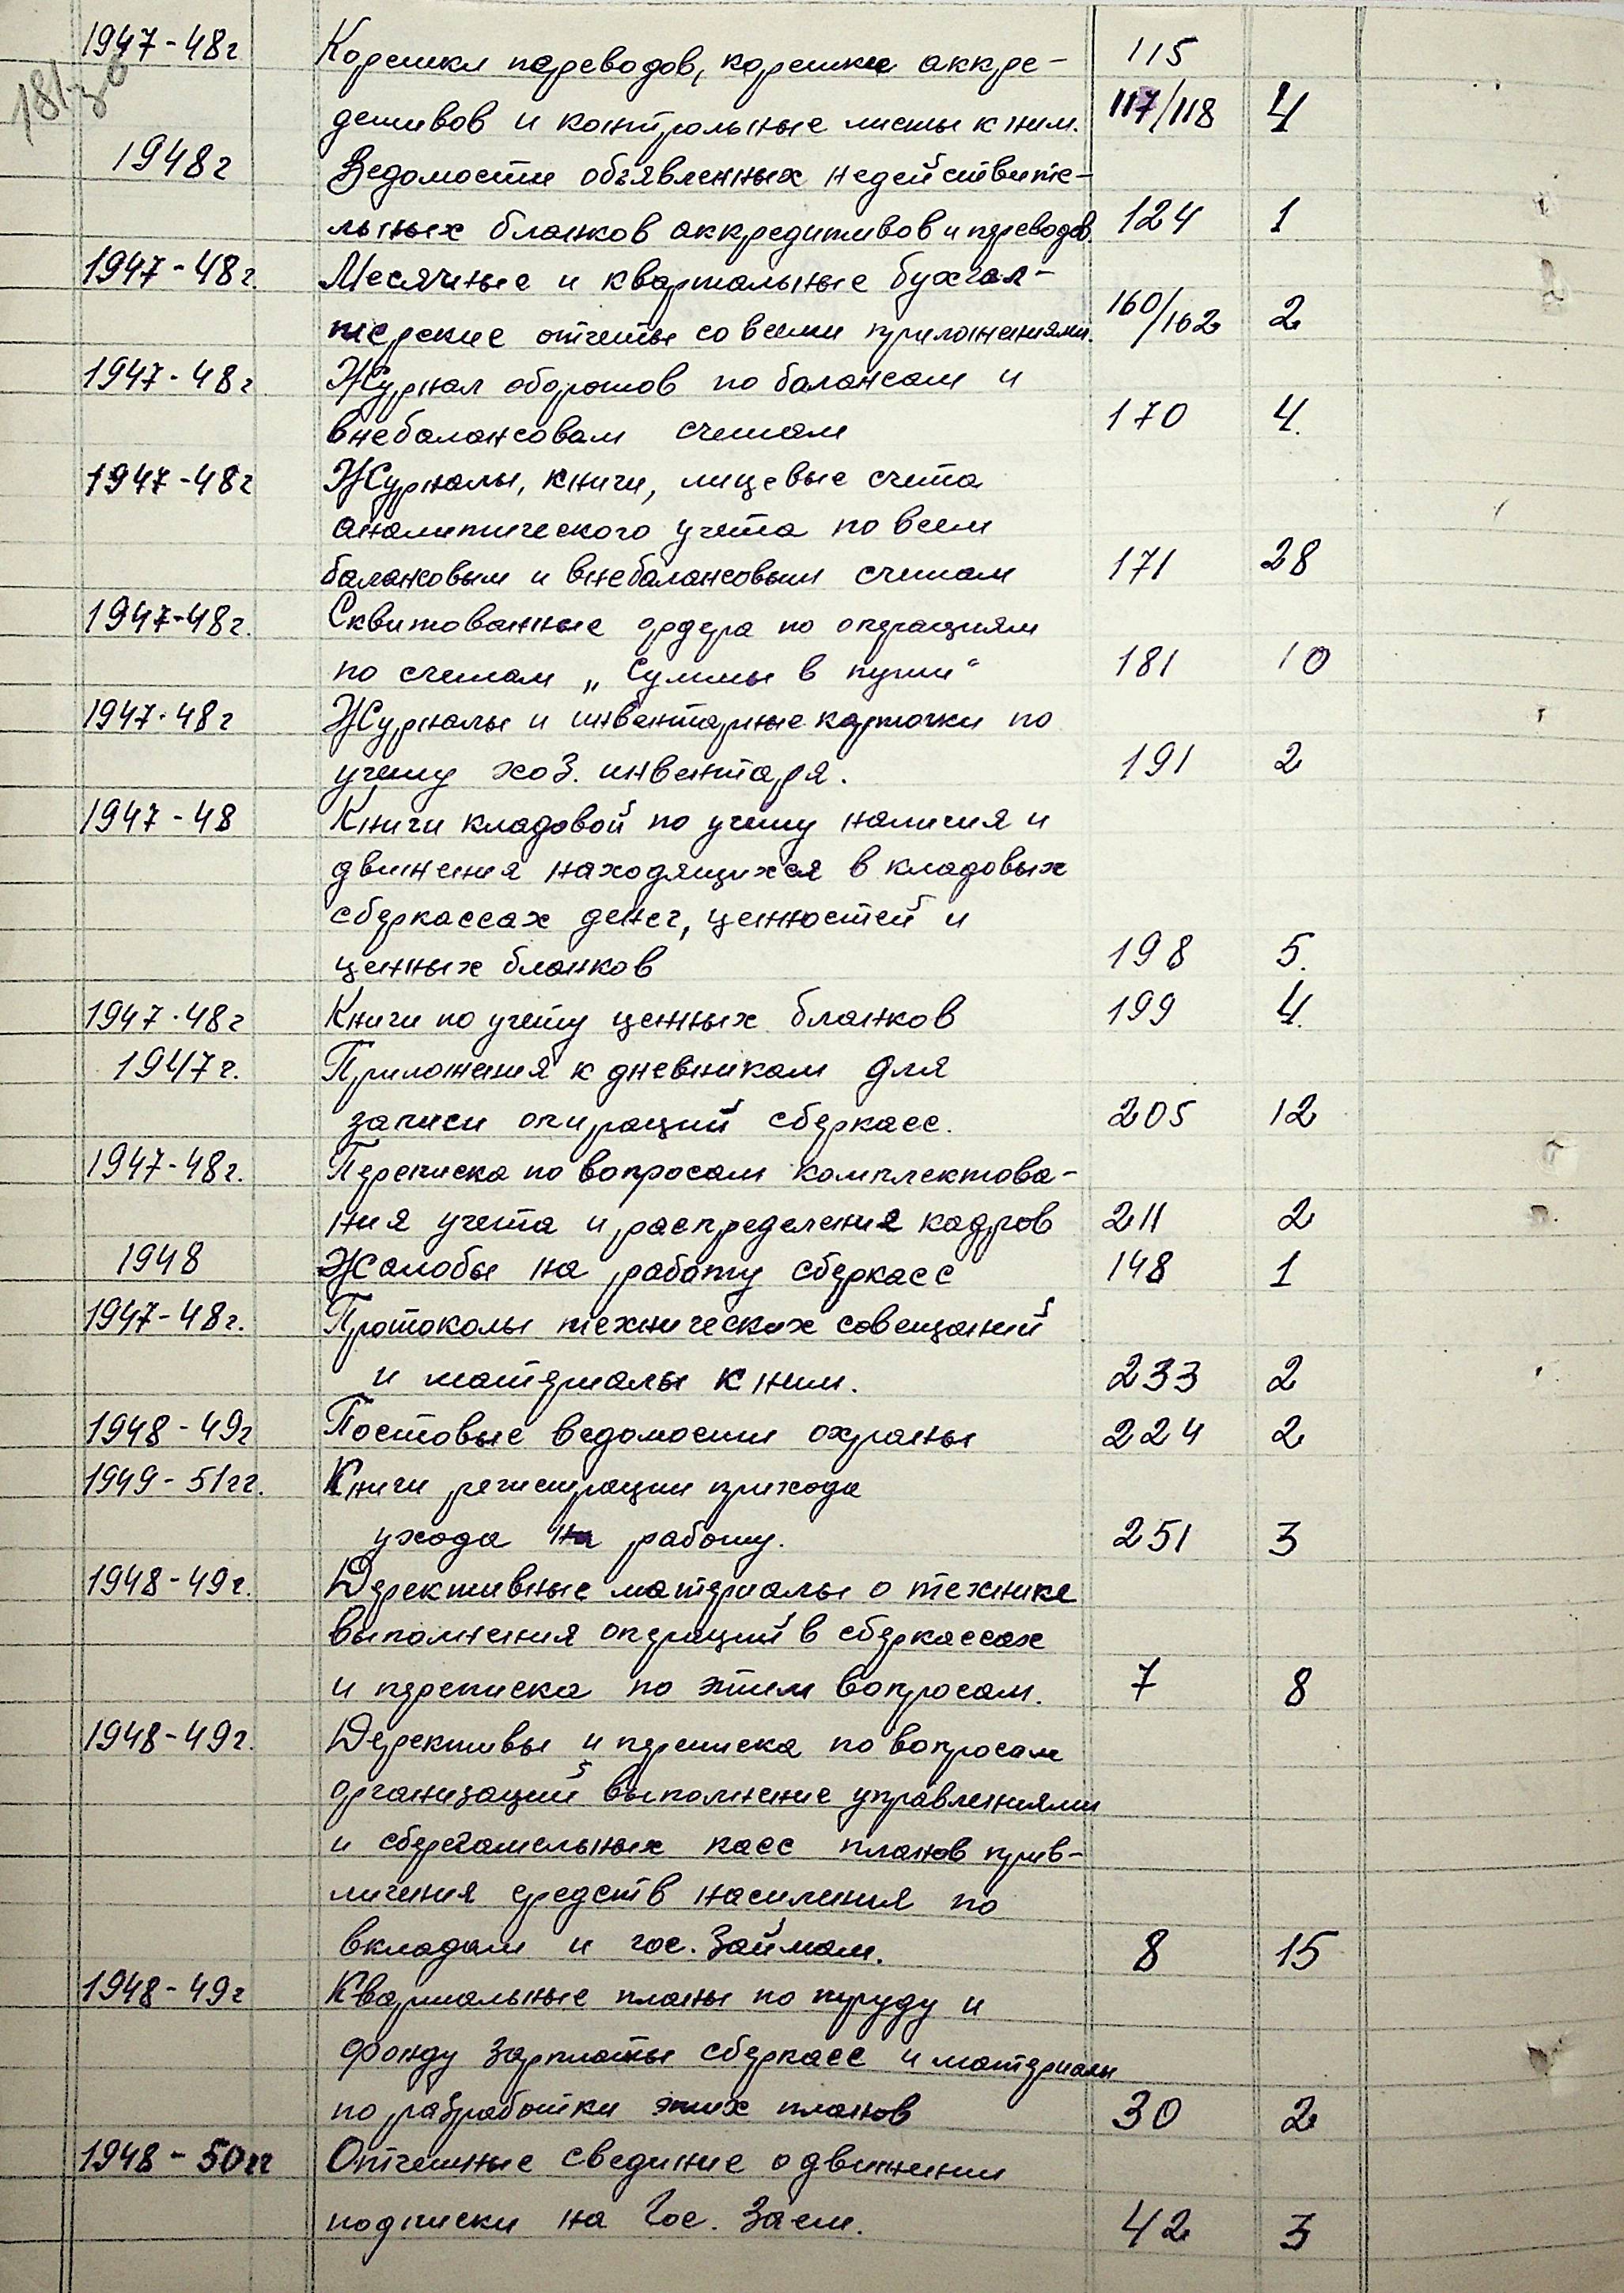 1947-48г Корешки переводов, корешки аккре- 115
детивов и контрольные листы к ним. 117/118 4
1948г Ведомости объявленных недействите-
льных бланков аккредитивов и переводов. 124 1
1947-48г. Месячные и квартальные бухгал-
терские отчеты со всеми приложениями. 160/162 2
1947-48г Журнал оборотов по балансам и
внебалансовам счетам 170 4.
1947-48г Журналы, книги, лицевые счета
аналитического учета по всем
балансовым и внебалансовым счетам 171 28
1947-48г. Сквитованные ордера по операциям
по счетам „Суммы в пути“ 181 10
1947-48г Журналы и инвентарные карточки по
учету хоз. инвентаря. 191 2
1947-48 Книги кладовой по учету наличия и
движения находящихся в кладовых
сберкассах денег, ценностей и
ценных бланков 198 5.
1947-48г Книги по учету ценных бланков 199 4.
1947г. Приложения к дневникам для
записи опираций сберкасс. 205 12
1947-48г. Переписка по вопросам комплектова-
ния учета и распределения кадров 211 2
1948 Жалобы на работу сберкасс 148 1
1947-48г. Протоколы технических совещаний
и материалы к ним. 233 2
1948-49г Постовые ведомости охраны 224 2
1949-51гг. Книги регистрации прихода
ухода на работу. 251 3
1948-49г. Дерективные материалы о технике
выполнения операций в сберкассах
и переписка по этим вопросам. 7 8
1948-49г. Дерективы и переписка по вопросам
организаций выполнение управлениями
и сберегательных касс планов прив-
личения средств насиления по
вкладам и гос. Займам. 8 15
1948-49г Квартальные планы по труду и
фонду зарплаты сберкасс и материалы
по разработки этих планов 30 2
1948-50гг Отчетные сведение о движении
подписки на Гос. Заем. 42 3